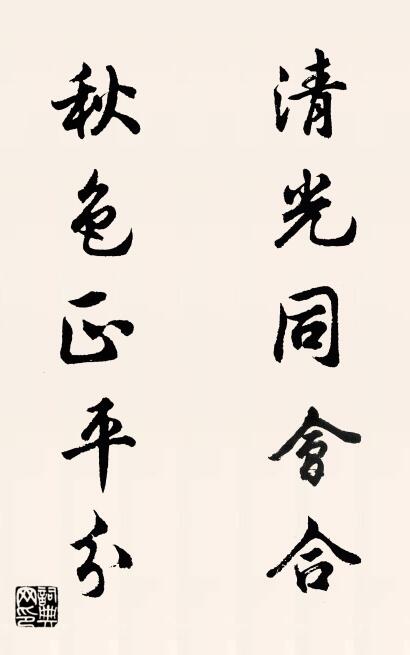 清光同會合
秋色正平分
詞典网印